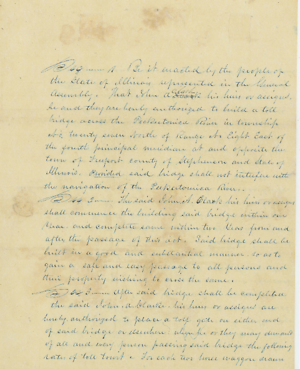 Sec 1. Be it enacted by the people of
the State of Illinois represented in the General
Assembly. That John A. Clark his heirs or assigns
he and they are hereby authorized to build a toll
bridge across the Peckatonica River in township
No. twenty seven North of range No. Eight East of
the fourth principal meridian at and opposite the
town of Freeport county of Stephenson and State of
Illinois. Provided said bridge shall not interfere with
the navigation of the Peckatonica river.
Sec 2 The said John A. Clark his heirs or assigns
shall commence the building said bridge within one
year and complete same within two years from and
after the passage of this act. Said bridge shall be
built in a good and substantial manner so as to
give a safe and easy passage to all persons and
their property wishing to cross the same.
Sec 3 After said bridge shall be completed
the said John A. Clark his heirs or assigns are
hereby authorized to place a toll gate on either end
of said bridge or elsewhere where he or they may demand
of all and every person passing said bridge the following
rates of toll to wit: For each two horse waggon drawn